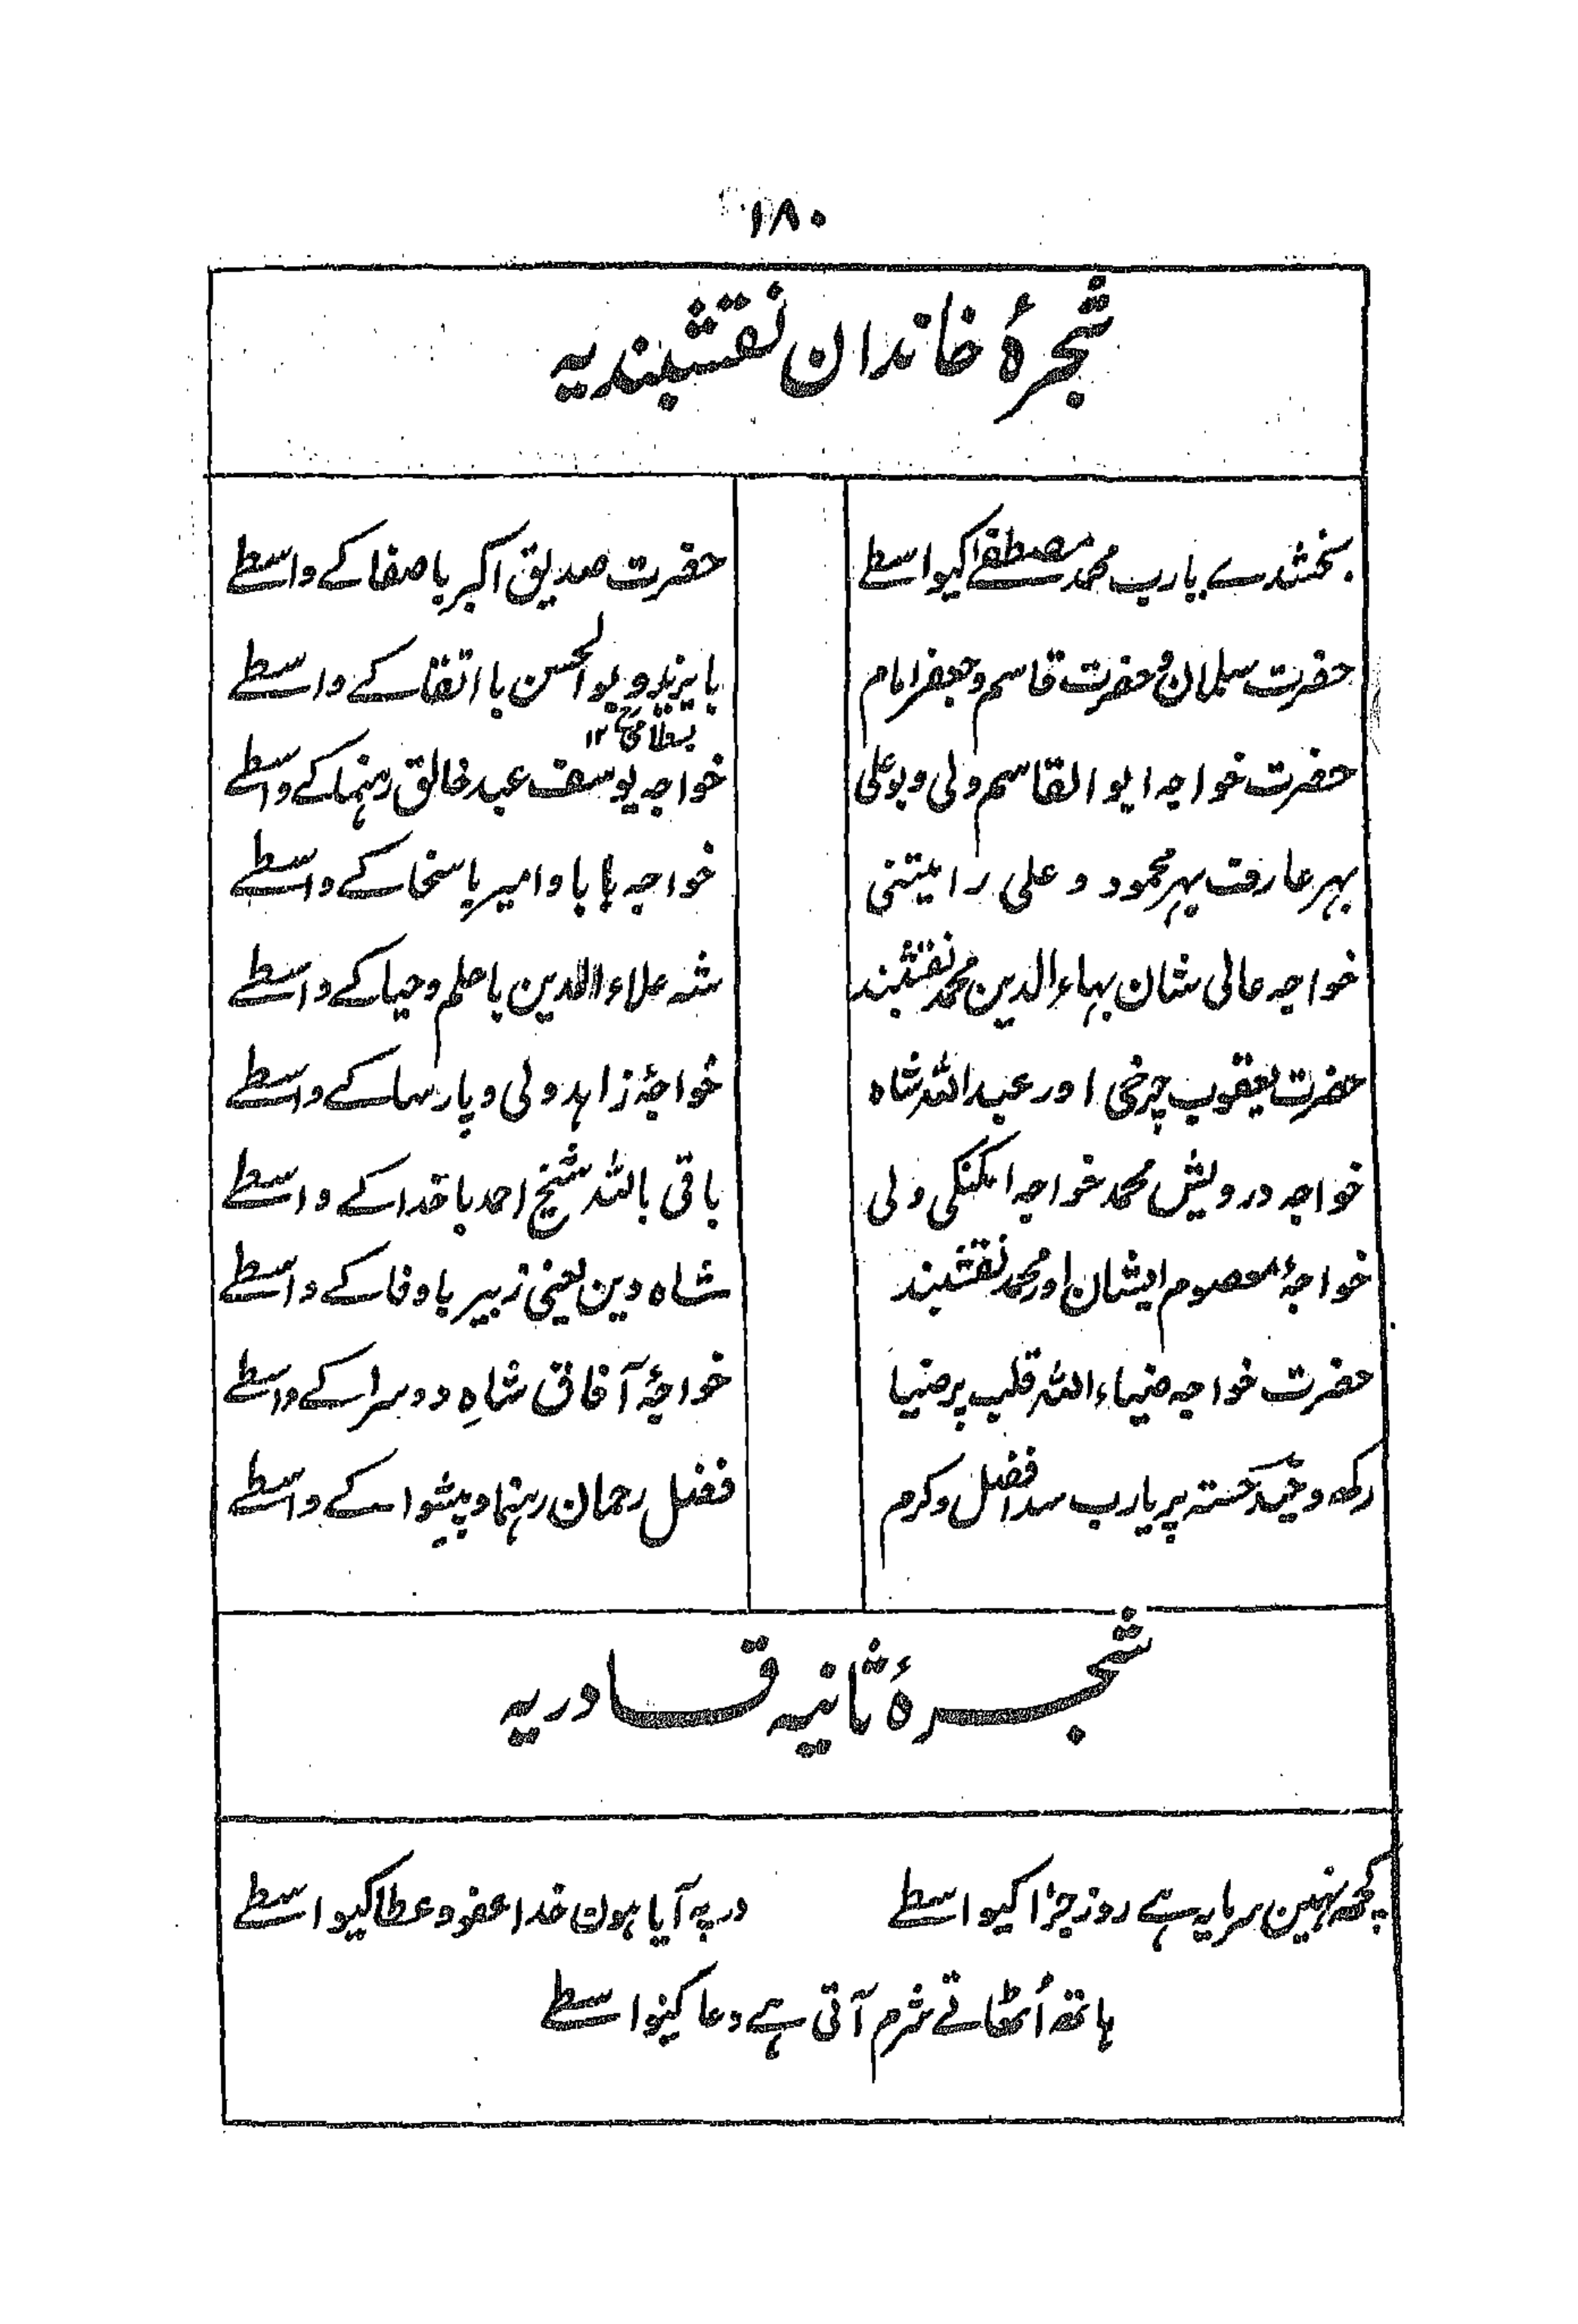 ۱۸۰
شجرۂ خاندان نقشبندیہ
بخشدے یارب محمد مصطفےٰ کیواسطے حضرت صدیق اکبر باصفا کے واسطے
حضرت سلمان و حضرت قاسم و جعفر امام بایزید و بو الحسن با اتقا کے واسطے
بسطامیؒ ۱۲
حضرت خواجہ ابو القاسم ولی و بو علی خواجہ یوسف عبد خالق رہنما کے واسطے
بہر عارف بہر محمود و علی رامیتنی خواجہ بابا و امیر باسخا کے واسطے
خواجہ عالی شان بہاء الدین محمد نقشبند شہ علاء الدین باحلم و حیا کے واسطے
حضرت یعقوب چرخی اور عبد اللہ شاہ خواجۂ زاہد ولی و پارسا کے واسطے
خواجہ درویش محمد خواجہ امکنگی ولی باقی باللہ شیخ احمد باخدا کے واسطے
خواجۂ معصوم ایشان اور محمد نقشبند شاہ دین یعنی زبیر باوفا کے واسطے
حضرت خواجہ ضیاء اللہ قلب پر ضیا خواجۂ آفاق شاہِ دوسرا کے واسطے
رکھ وحید خستہ پر یارب سدا فضل و کرم فضل رحمان رہنما و پیشوا کے واسطے
شجرۂ ثانیہ قادریہ
کچھ نہین سرمایہ ہے روز جزا کیواسطے در پہ آیا ہون خدا عفو و عطا کیواسطے
ہاتھ اُٹھاتے شرم آتی ہے دعا کیواسطے